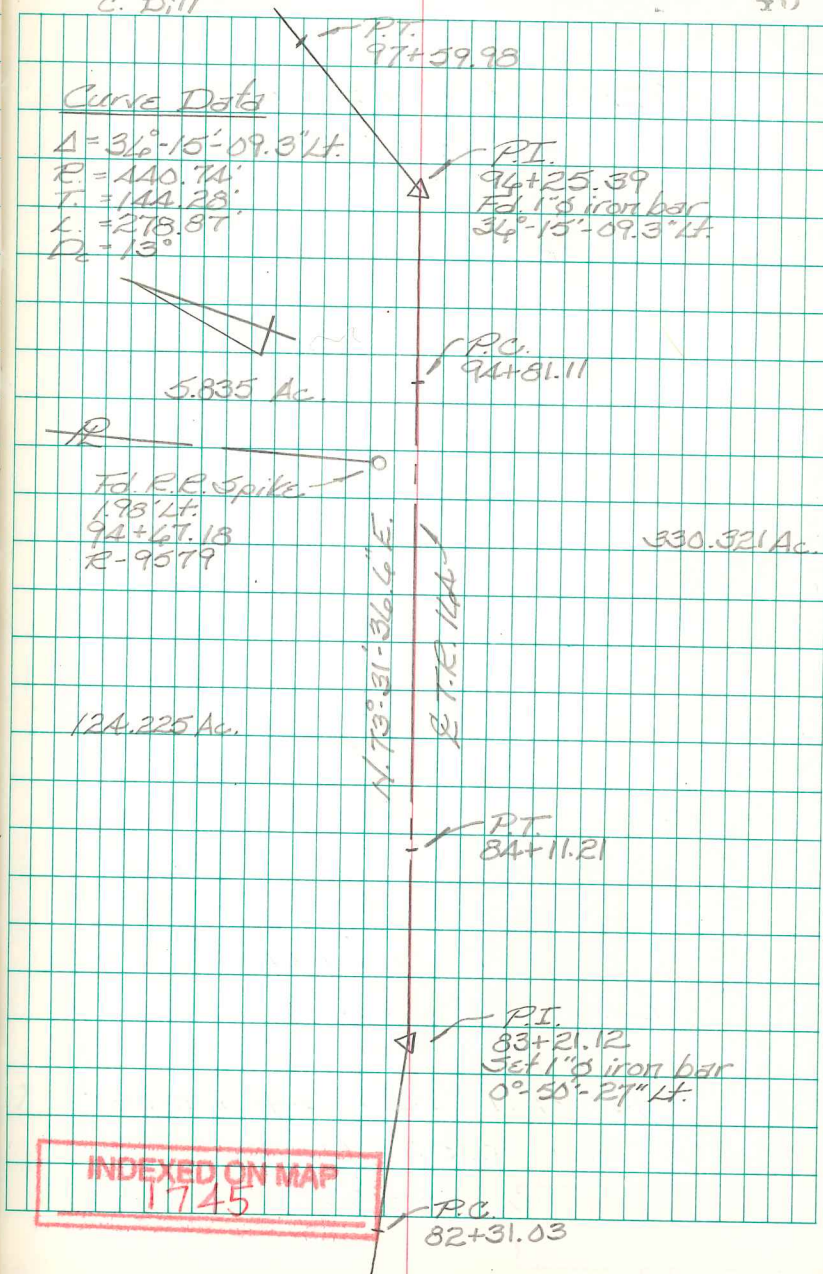 C. Dill
P.T.
97+59.98
Curve Data
Δ = 36°-15'-09.3" Lt.
R. = 440.74'
T. = 144.28'
L. = 278.87'
Dc = 13°
P.I.
96+25.39
Fd. 1"ø iron bar
36°-15'-09.3" Lt.
P.C.
94+81.11
5.835 Ac.
PL
Fd. R.R. Spike
1.98' Lt.
94+67.18
R-9579
330.321 Ac.
N.73°-31'-36.6"E.
℄ T.R. 164
124.225 Ac.
P.T.
84+11.21
P.I.
83+21.12
Set 1"ø iron bar
0°-50'-27" Lt.
INDEXED ON MAP
1745
P.C.
82+31.03